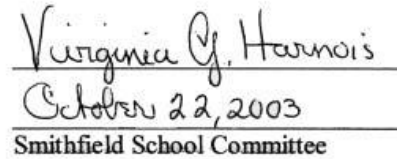 Virginia G. Harnois
October 22, 2003
Smithfield School Committee